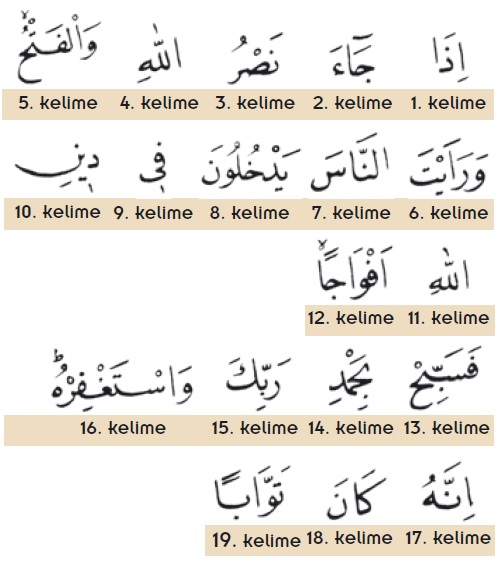 اِذَا جَٓاءَ نَصْرُ اللّٰهِ وَالْفَتْحُۙ
5. kelime 4. kelime 3. kelime 2. kelime 1. kelime
وَرَاَيْتَ النَّاسَ يَدْخُلُونَ ف۪ي د۪ينِ
10. kelime 9. kelime 8. kelime 7. kelime 6. kelime
اللّٰهِ اَفْوَاجًاۙ
12. kelime 11. kelime
فَسَبِّحْ بِحَمْدِ رَبِّكَ وَاسْتَغْفِرْهُۜ
16. kelime 15. kelime 14. kelime 13. kelime
اِنَّهُ كَانَ تَوَّابًا
19. kelime 18. kelime 17. kelime